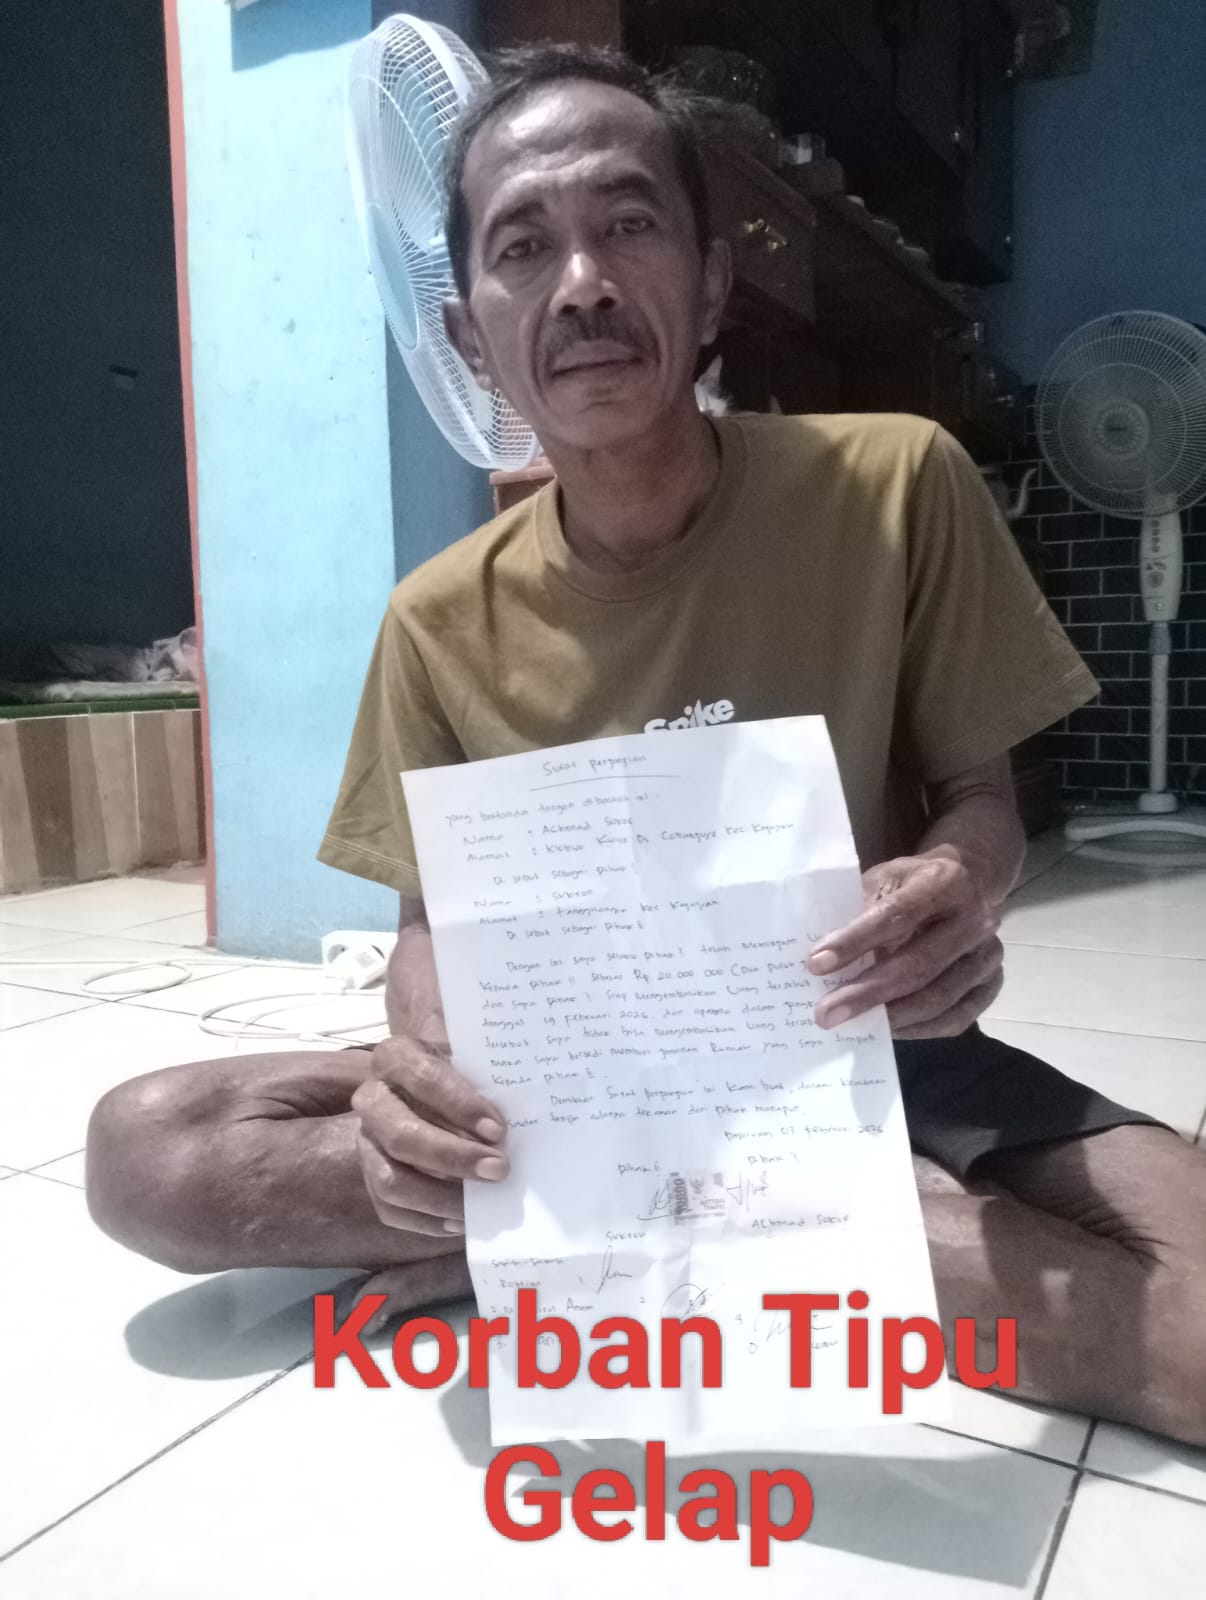 Spike
Surat perjanjian
yang bertanda tangan dibawah ini :
Nama : Achmad Sokor
Alamat : Klobuk Kulon Ds Cobanjoyo Kec. Kejayan
Di sebut sebagai pihak I
Nama : Sukron
Alamat : Kec Kejayan
Di sebut sebagai pihak II
Dengan ini saya selaku pihak I telah meminjam
Kepada pihak II sebesar Rp. 20.000.000 (Dua puluh
dan saya pihak I siap mengembalikan uang tersebut pada
tanggal 19 Februari 2026. dan apabila dalam jangka
tersebut saya tidak bisa mengembalikan uang tersebut
Maka saya bersedi memberi jaminan Rumah yang saya tempati
Kepada pihak II.
Demikian surat perjanjian ini kami buat, dalam keadaan
sadar tanpa adanya tekanan dari pihak manapun.
Pasuruan, 03 Februari 2026
Pihak II Pihak I
10000
METERAI
TEMPEL
Sukron Achmad Sokor
Saksi-Saksi
1. Rohim 1.
2. 2
3. 3
Korban Tipu
Gelap